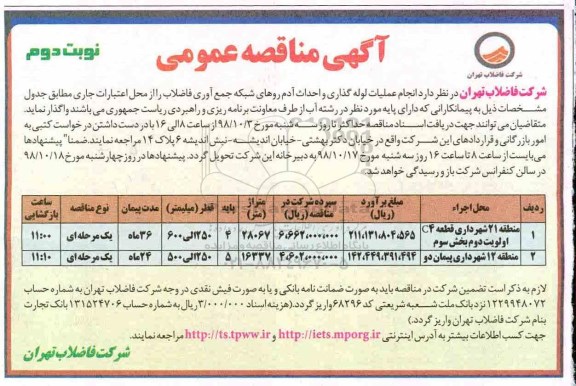 آگهی مناقصه عمومی
نوبت دوم
شرکت فاضلاب تهران
شرکت فاضلاب تهران در نظر دارد انجام عملیات لوله گذاری و احداث آدم روهای شبکه جمع آوری فاضلاب را از محل اعتبارات جاری مطابق جدول
مشخصات ذیل به پیمانکارانی که دارای پایه مورد نظر در رشته آب از طرف معاونت برنامه ریزی و راهبردی ریاست جمهوری می باشند واگذار نماید.
متقاضیان می توانند جهت دریافت اسناد مناقصه حداکثر تا روز سه شنبه مورخ ۹۸/۱۰/۳ از ساعت ۸ الی ۱۶ با در دست داشتن درخواست کتبی به
امور بازرگانی و قراردادهای این شرکت واقع در خیابان دکتر بهشتی- خیابان اندیشه- نبش اندیشه ۶ پلاک ۱۴ مراجعه نمایند. ضمنا" پیشنهادها
می بایست از ساعت ۸ تا ساعت ۱۶ روز سه شنبه مورخ ۹۸/۱۰/۱۷ به دبیرخانه این شرکت تحویل گردد. پیشنهادها در روز چهارشنبه مورخ ۹۸/۱۰/۱۸
در سالن کنفرانس شرکت باز و رسیدگی خواهد شد.
ردیف محل اجراء مبلغ برآورد (ریال) سپرده شرکت در مناقصه (ریال) متراژ (متر) پایه قطر (میلیمتر) مدت پیمان نوع مناقصه ساعت بازگشایی
۱ منطقه ۲۱ شهرداری قطعه C۴ اولویت دوم بخش سوم ۲۱۱،۱۳۱،۸۰۴،۵۶۵ ۶،۶۶۲،۰۰۰،۰۰۰ ۲۸۰۶۷ ۴ ۲۵۰ الی ۶۰۰ ۳۶ ماه یک مرحله ای ۱۱:۰۰
۲ منطقه ۱۲ شهرداری پیمان دو ۱۴۲،۴۴۹،۳۹۱،۴۹۴ ۴،۶۰۲،۰۰۰،۰۰۰ ۱۶۳۳۷ ۵ ۲۵۰ الی ۵۰۰ ۲۴ ماه یک مرحله ای ۱۱:۱۰
لازم به ذکر است تضمین شرکت در مناقصه باید به صورت ضمانت نامه بانکی و یا به صورت فیش نقدی در وجه شرکت فاضلاب تهران به شماره حساب
۱۲۲۹۹۴۸۰۷۲ نزد بانک ملت شعبه شریعتی کد ۶۸۲۹۶ واریز گردد. (هزینه اسناد ۳/۰۰۰/۰۰۰ ریال به شماره حساب ۱۳۱۵۲۴۷۰۶ بانک تجارت
بنام شرکت فاضلاب تهران واریز گردد.)
جهت کسب اطلاعات بیشتر به آدرس اینترنتی http://iets.mporg.ir و http://ts.tpww.ir مراجعه نمایند.
شرکت فاضلاب تهران